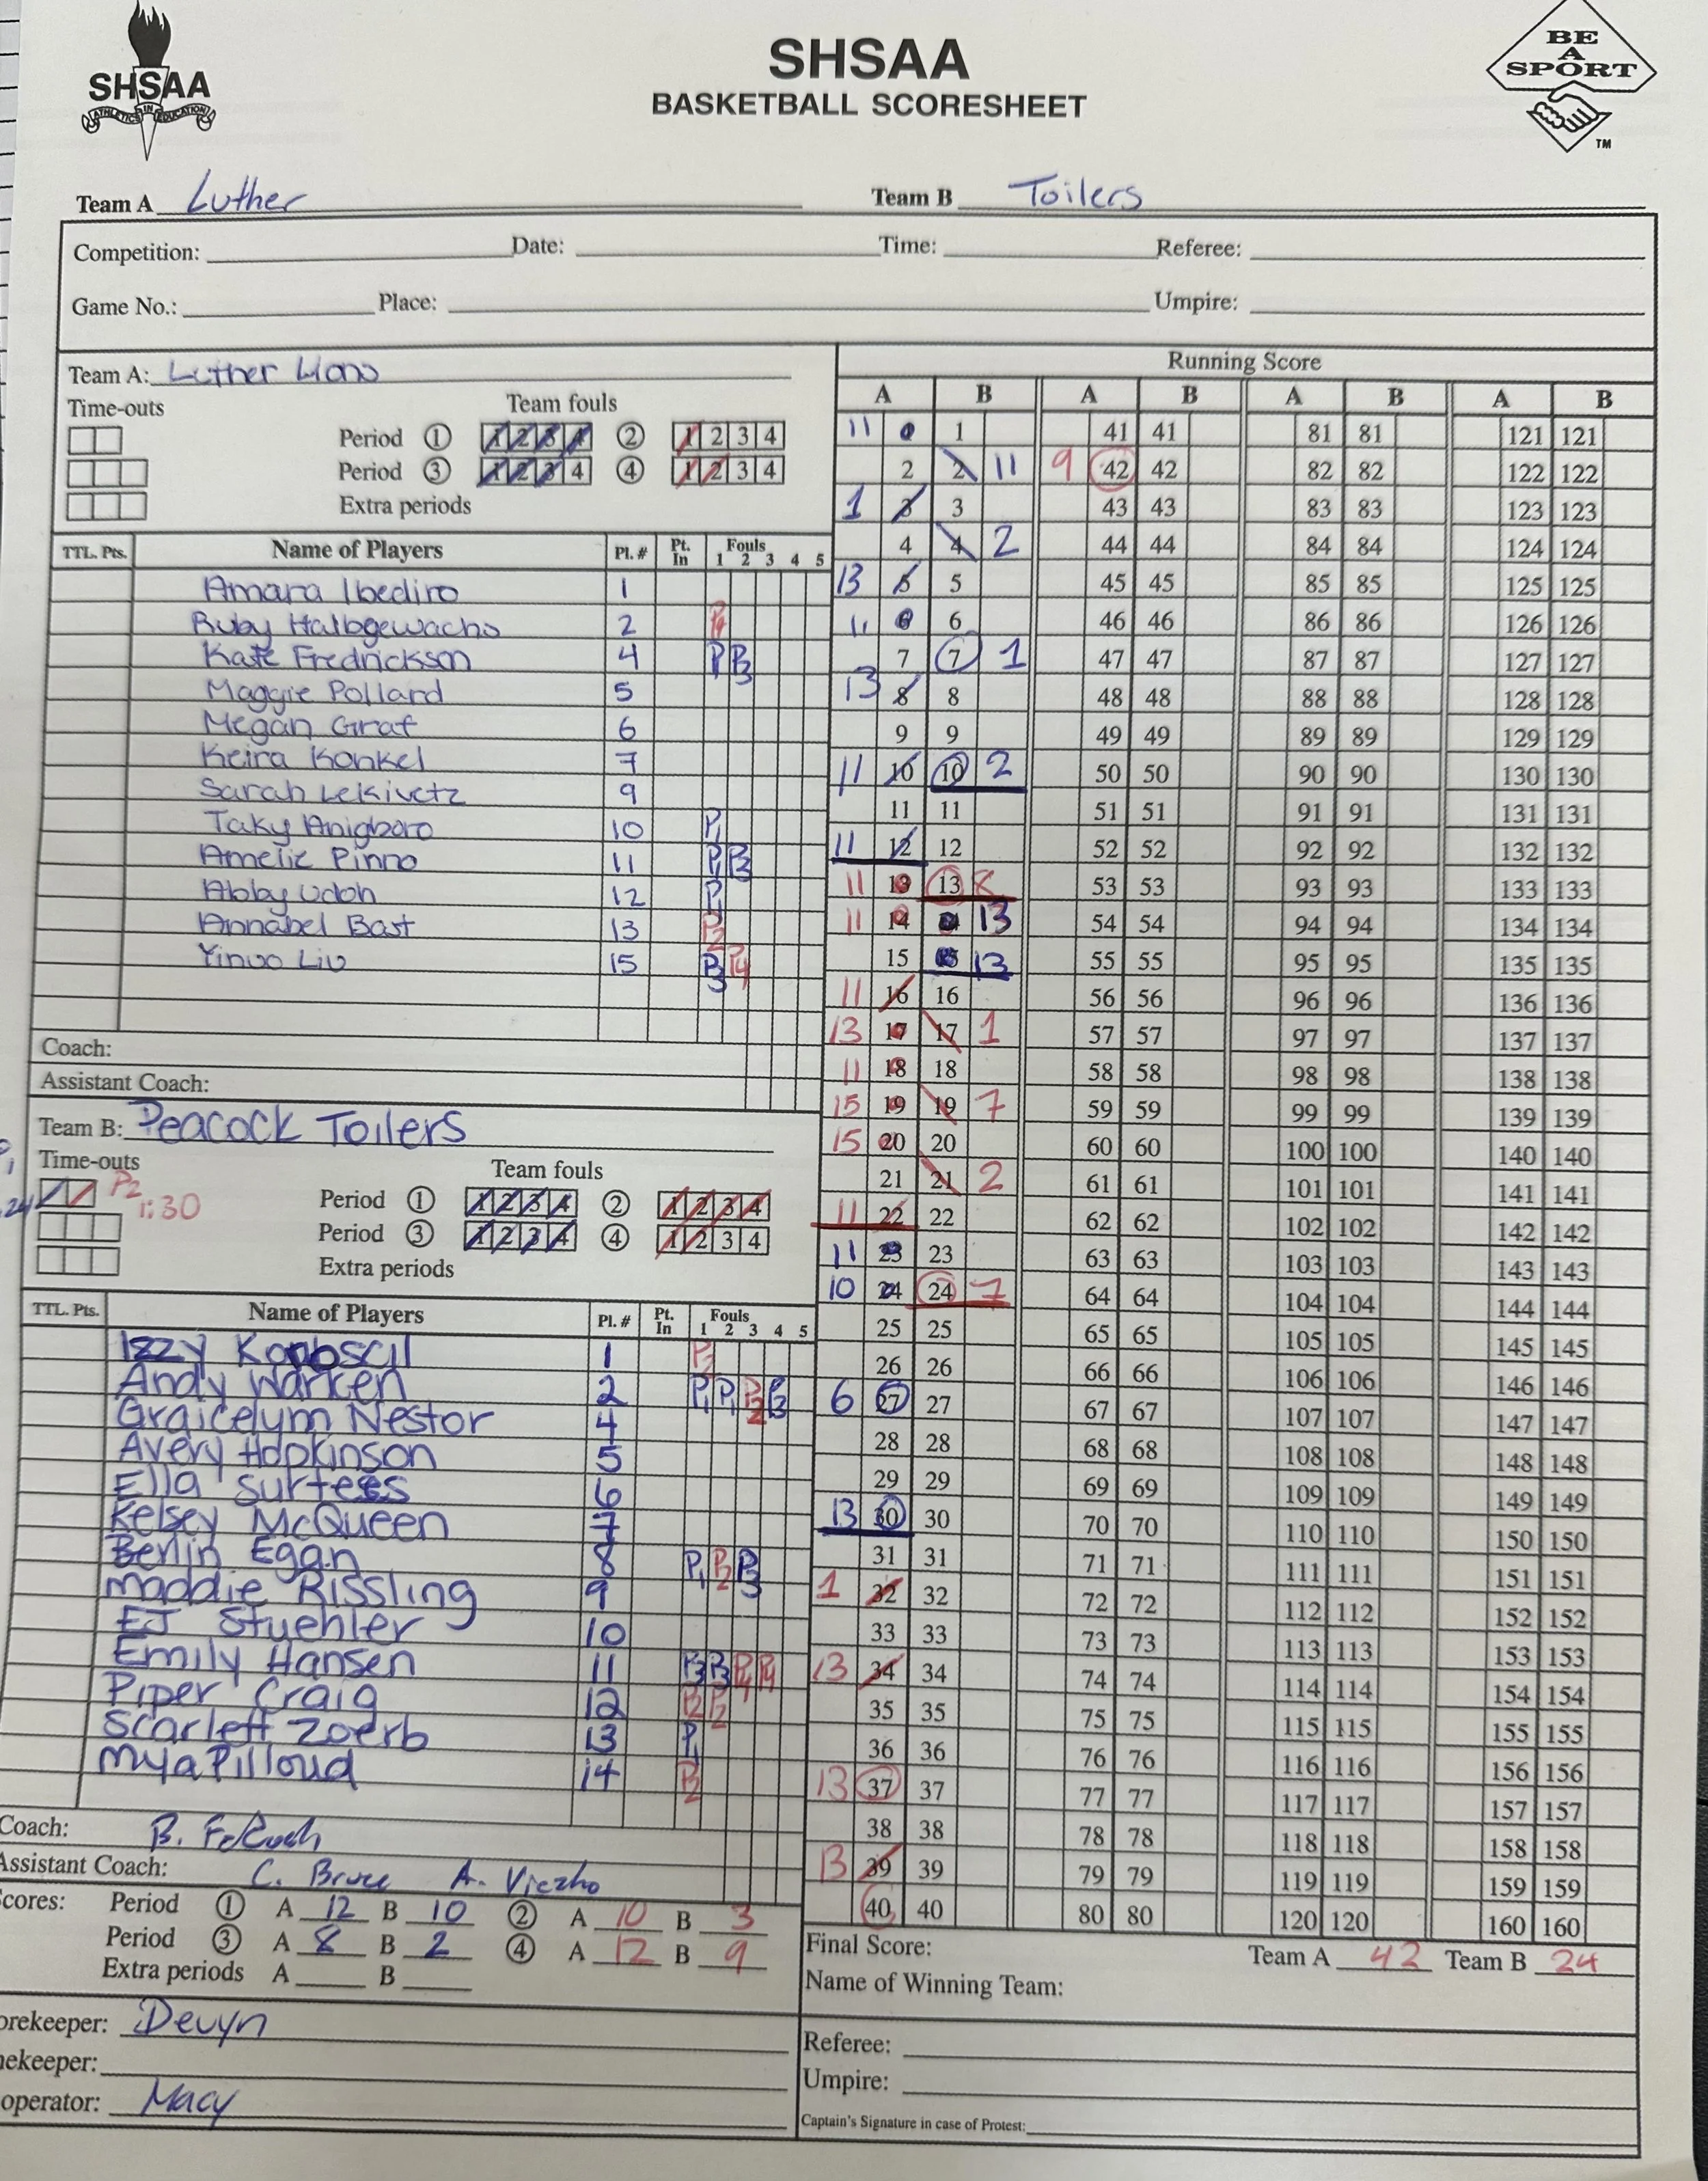 SHSAA
ATHLETICS IN EDUCATION
SHSAA
BASKETBALL SCORESHEET
BE
A
SPORT
TM
Team A Luther Team B Toilers
Competition: Date: Time: Referee:
Game No.: Place: Umpire:
Team A: Luther Lions
Time-outs Team fouls
Period 1 1 2 3 4 2 1 2 3 4
Period 3 1 2 3 4 4 1 2 3 4
Extra periods
TTL. Pts. Name of Players Pl. # Pt. In Fouls 1 2 3 4 5
Amara Ibediro 1
Ruby Halbgewachs 2 P4
Kate Fredrickson 4 P P3
Maggie Pollard 5
Megan Graf 6
Keira Konkel 7
Sarah Lekivetz 9
Taky Anigboro 10 P1
Amelie Pinno 11 P1 P3
Abby Udoh 12 P1
Annabel Bast 13 P2
Yinuo Liu 15 P3 P4
Coach:
Assistant Coach:
Team B: Peacock Toilers
Time-outs Team fouls
P2
1:30
Period 1 1 2 3 4 2 1 2 3 4
Period 3 1 2 3 4 4 1 2 3 4
Extra periods
TTL. Pts. Name of Players Pl. # Pt. In Fouls 1 2 3 4 5
Izzy 1
Andy Warken 2 P1 P1 P2 P3
Graicelym Nestor 4
Avery Hopkinson 5
Ella Surtees 6
Kelsey McQueen 7
Berlin Egan 8 P1 P2 P3
Maddie Rissling 9
EJ Stuehler 10
Emily Hansen 11 P3 P3 P4 P4
Piper Craig 12 P2 P2
Scarlett Zoerb 13 P1
Mya Pilloud 14 P2
Coach: B.
Assistant Coach: C. Bruce A.
cores: Period 1 A 12 B 10 2 A 10 B 3
Period 3 A 8 B 2 4 A 12 B 9
Extra periods A B
orekeeper: Devyn
nekeeper:
operator: Macy
Running Score
A B A B A B A B
11 1 1 41 41 81 81 121 121
2 2 11 9 42 42 82 82 122 122
1 3 3 43 43 83 83 123 123
4 4 2 44 44 84 84 124 124
13 5 5 45 45 85 85 125 125
11 6 6 46 46 86 86 126 126
7 7 1 47 47 87 87 127 127
13 8 8 48 48 88 88 128 128
9 9 49 49 89 89 129 129
11 10 10 2 50 50 90 90 130 130
11 11 51 51 91 91 131 131
11 12 12 52 52 92 92 132 132
11 13 13 8 53 53 93 93 133 133
11 14 14 13 54 54 94 94 134 134
15 15 13 55 55 95 95 135 135
11 16 16 56 56 96 96 136 136
13 17 17 1 57 57 97 97 137 137
11 18 18 58 58 98 98 138 138
15 19 19 7 59 59 99 99 139 139
15 20 20 60 60 100 100 140 140
21 21 2 61 61 101 101 141 141
11 22 22 62 62 102 102 142 142
11 23 23 63 63 103 103 143 143
10 24 24 7 64 64 104 104 144 144
25 25 65 65 105 105 145 145
26 26 66 66 106 106 146 146
6 27 27 67 67 107 107 147 147
28 28 68 68 108 108 148 148
29 29 69 69 109 109 149 149
13 30 30 70 70 110 110 150 150
31 31 71 71 111 111 151 151
1 32 32 72 72 112 112 152 152
33 33 73 73 113 113 153 153
13 34 34 74 74 114 114 154 154
35 35 75 75 115 115 155 155
36 36 76 76 116 116 156 156
13 37 37 77 77 117 117 157 157
38 38 78 78 118 118 158 158
13 39 39 79 79 119 119 159 159
40 40 80 80 120 120 160 160
Final Score: Team A 42 Team B 24
Name of Winning Team:
Referee:
Umpire:
Captain's Signature in case of Protest: